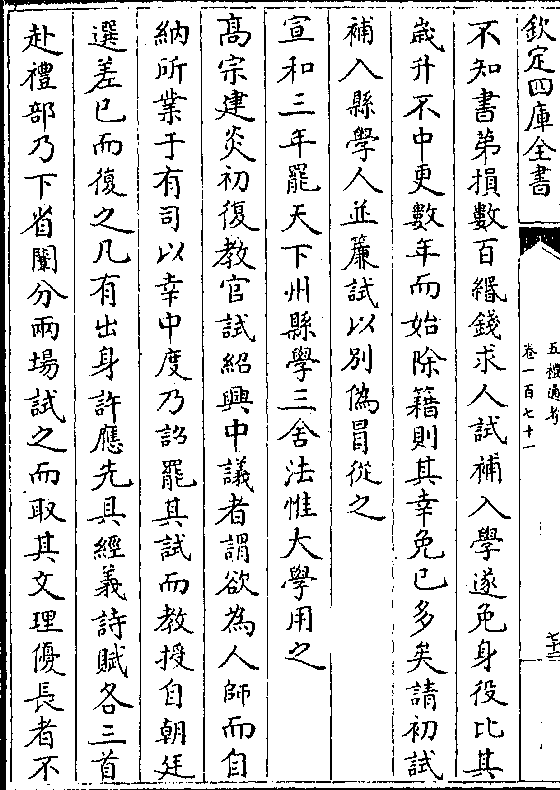 欽定四庫全書
五禮通考
卷一百七十一
不知書第損數百緡錢求人試補入學遂免身役比其
歲升不中更數年而始除籍則其幸免已多矣請初試
補入縣學人並簾試以別僞冒從之
宣和三年罷天下州縣學三舍法惟大學用之
高宗建炎初復教官試紹興中議者謂欲為人師而自
納所業于有司以幸中度乃詔罷其試而教授自朝廷
選差已而復之凡有出身許應先具經義詩賦各三首
赴禮部乃下省闈分兩場試之而取其文理優長者不